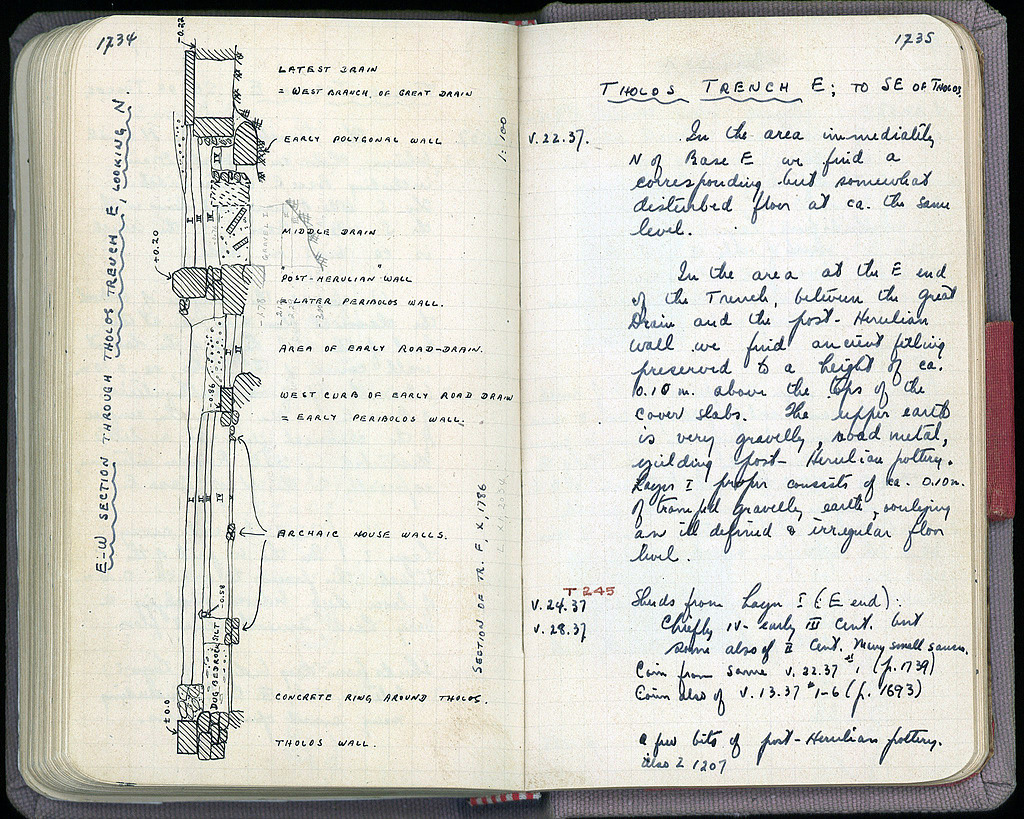 1734
E-W SECTION THROUGH THOLOS TRENCH E, LOOKING N.
-0.22
LATEST DRAIN
= WEST BRANCH OF GREAT DRAIN
EARLY POLYGONAL WALL
1:100
IV
I II III IV
GRAVEL
MIDDLE DRAIN
+0.20
"POST-HERULIAN" WALL
= LATER PERIBOLOS WALL.
AREA OF EARLY ROAD-DRAIN.
I II
-0.86
WEST CURB OF EARLY ROAD DRAIN
= EARLY PERIBOLOS WALL.
I II III IV
ARCHAIC HOUSE WALLS.
SECTION OF TR. F, X, 1786
-0.58
DUG BEDROCK SILT
±0.0
CONCRETE RING AROUND THOLOS.
THOLOS WALL.
1735
THOLOS TRENCH E; TO SE OF THOLOS.
V.22.37.
In the area immediately
N of Base E we find a
corresponding but somewhat
disturbed floor at ca. the same
level.
In the area at the E end
of the Trench, between the great
Drain and the post-Herulian
wall we find ancient filling
preserved to a height of ca.
0.10 m. above the tops of the
cover slabs. The upper earth
is very gravelly, road metal,
yielding post-Herulian pottery.
Layer I proper consists of ca. 0.10 m.
of trampled gravelly earth, overlying
an ill defined & irregular floor
level.
T 245
V.24.37
V.28.37
Sherds from Layer I (E end):
Chiefly IV-early III Cent. but
some also of II Cent. Many small saucers.
Coin from same V.22.37 #1 (p. 1739)
Coin also of V.13.37 #1-6 (p. 1693)
a few bits of post-Herulian pottery.
also Σ 1207